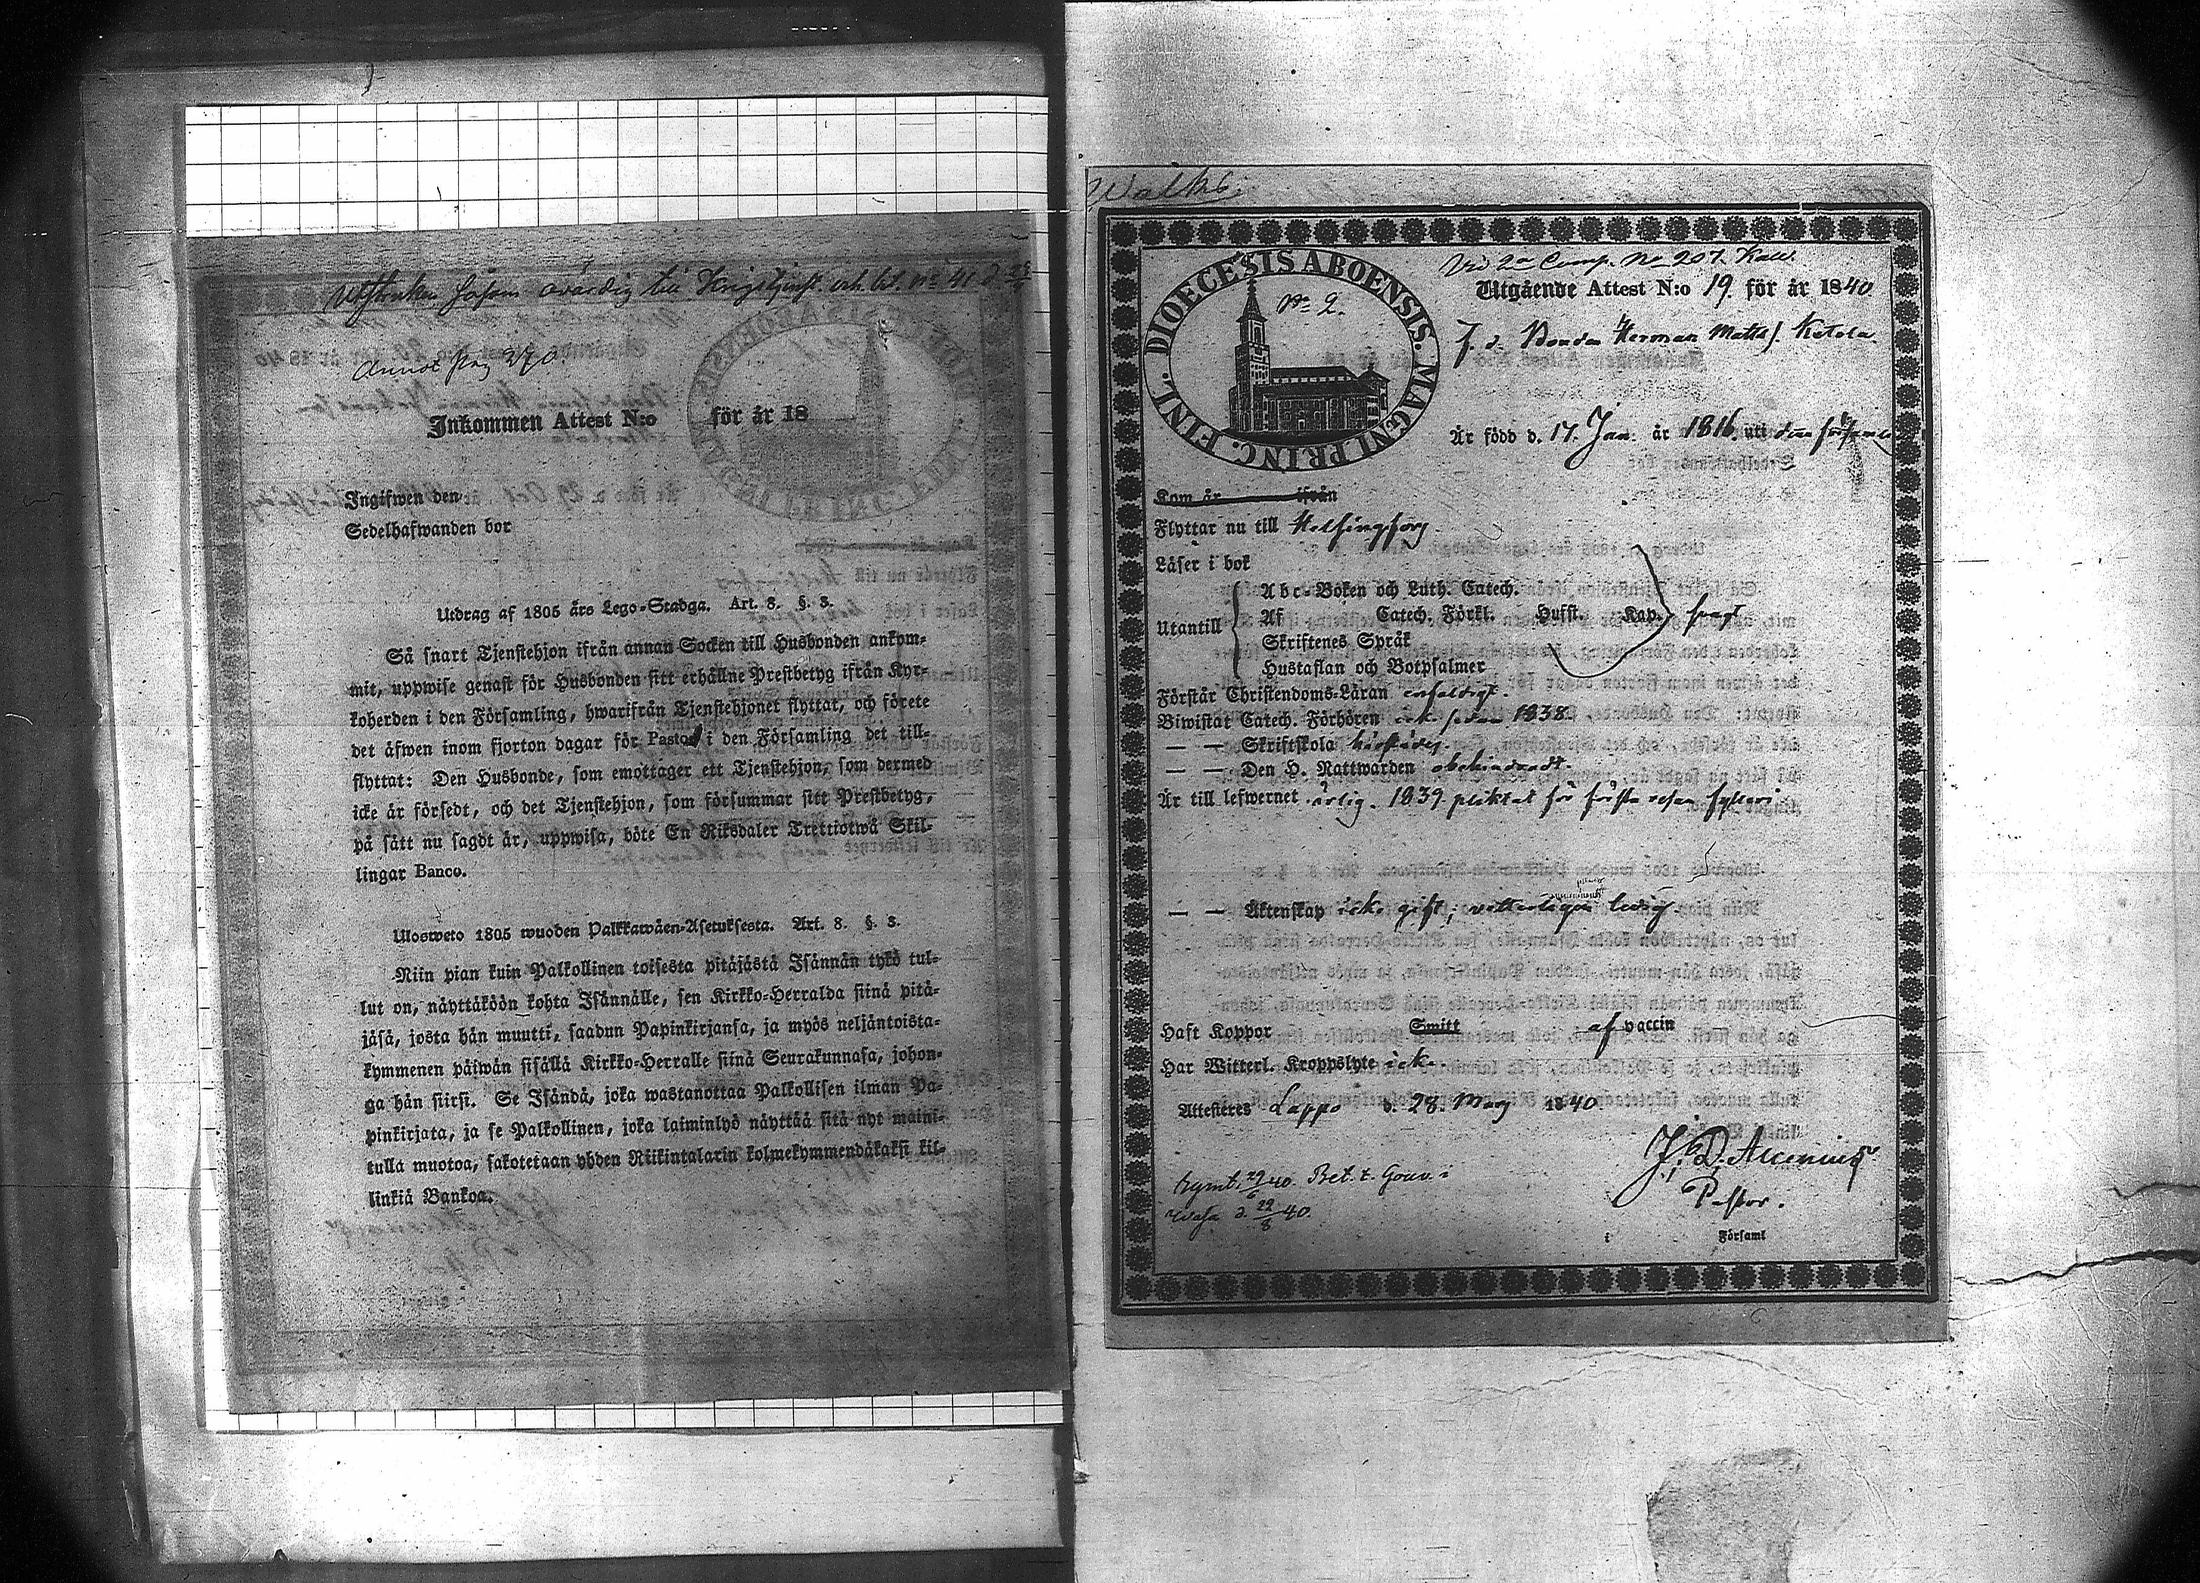 Utstruken såsom ovärdig till Krigstjenst enl. bl. no 41 d.
Annot pag 370.
Inkommen Attest N:o för år 18
Ingifwen den
Sedelhafwanden bor
Utdrag af 1805 års Lego-Stadga. Art. 8. §. 3.
Så snart Tjenstehjon ifrån annan Socken till Husbonden ankom-
mit, uppwise genast för Husbonden sitt erhållne Prestbetyg ifrån Kyr-
koherden i den Församling, hwarifrån Tjenstehjonet flyttat, och förete
det äfwen inom fjorton dagar för Pastor i den Församling det till-
flyttat: Den Husbonde, som emottager ett Tjenstehjon, som dermed
icke är försedt, och det Tjenstehjon, som försummar sitt Prestbetyg,
på sätt nu sagdt är, uppwisa, böte En Riksdaler Trettiotwå Skil-
lingar Banco.
Ulosweto 1805 wuoden Palkkawäen-Asetuksesta. Art. 8. §. 3.
Niin pian kuin Palkollinen toisesta pitäjästä Isännän tykö tul-
lut on, näyttäköön kohta Isännälle, sen Kirkko-Herralda siinä pitä-
jäsä, josta hän muutti, saadun Papinkirjansa, ja myös neljäntoista-
kymmenen päiwän sisällä Kirkko-Herralle siinä Seurakunnasa, johon-
ga hän siirsi. Se Isändä, joka wastanottaa Palkollisen ilman Pa-
pinkirjata, ja se Palkollinen, joka laiminlyö näyttää sitä nyt maini-
tulla muotoa, sakotetaan yhden Riikintalarin kolmekymmendäkaksi kil-
linkiä Bankoa.
DIOECESIS ABOENSIS. MAGNI PRINC. FINL.
No 2.
Vid 2a Comp. No 207. Kau.
Utgående Attest N:o 19. för år 1840
F. d. Bonden Herman Matts f. Ketola
Är född d. 17. Jan. år 1816. uti denna församl.
Kom år ifrån
Flyttar nu till Helsingfors
Läser i bok
Abc-Boken och Luth. Catech.
Utantill Af Catech. Förkl. Husst. Kap. svagt
Skriftenes Språk
Hustaflan och Botpsalmer
Förstår Christendoms-Läran enfaldigt.
Biwistat Catech. Förhören ick. sedan 1838.
— — Skriftskola härstädes.
— — Den H. Nattwarden obehindradt.
Är till lefwernet ärlig. 1839 pliktat för första resan fylleri
— — Äktenskap icke gift, vetterligen ledig
Haft Koppor Smitt af vaccin
Har Witterl. Kroppslyte ick.
Attesteras Lappo d. 28. Maij 1840
J. D. Alcenius
Pastor.
Rymt. 29/6 40. Bet. t. Gouv. i
Wasa d. 22/8 40.
i Församl